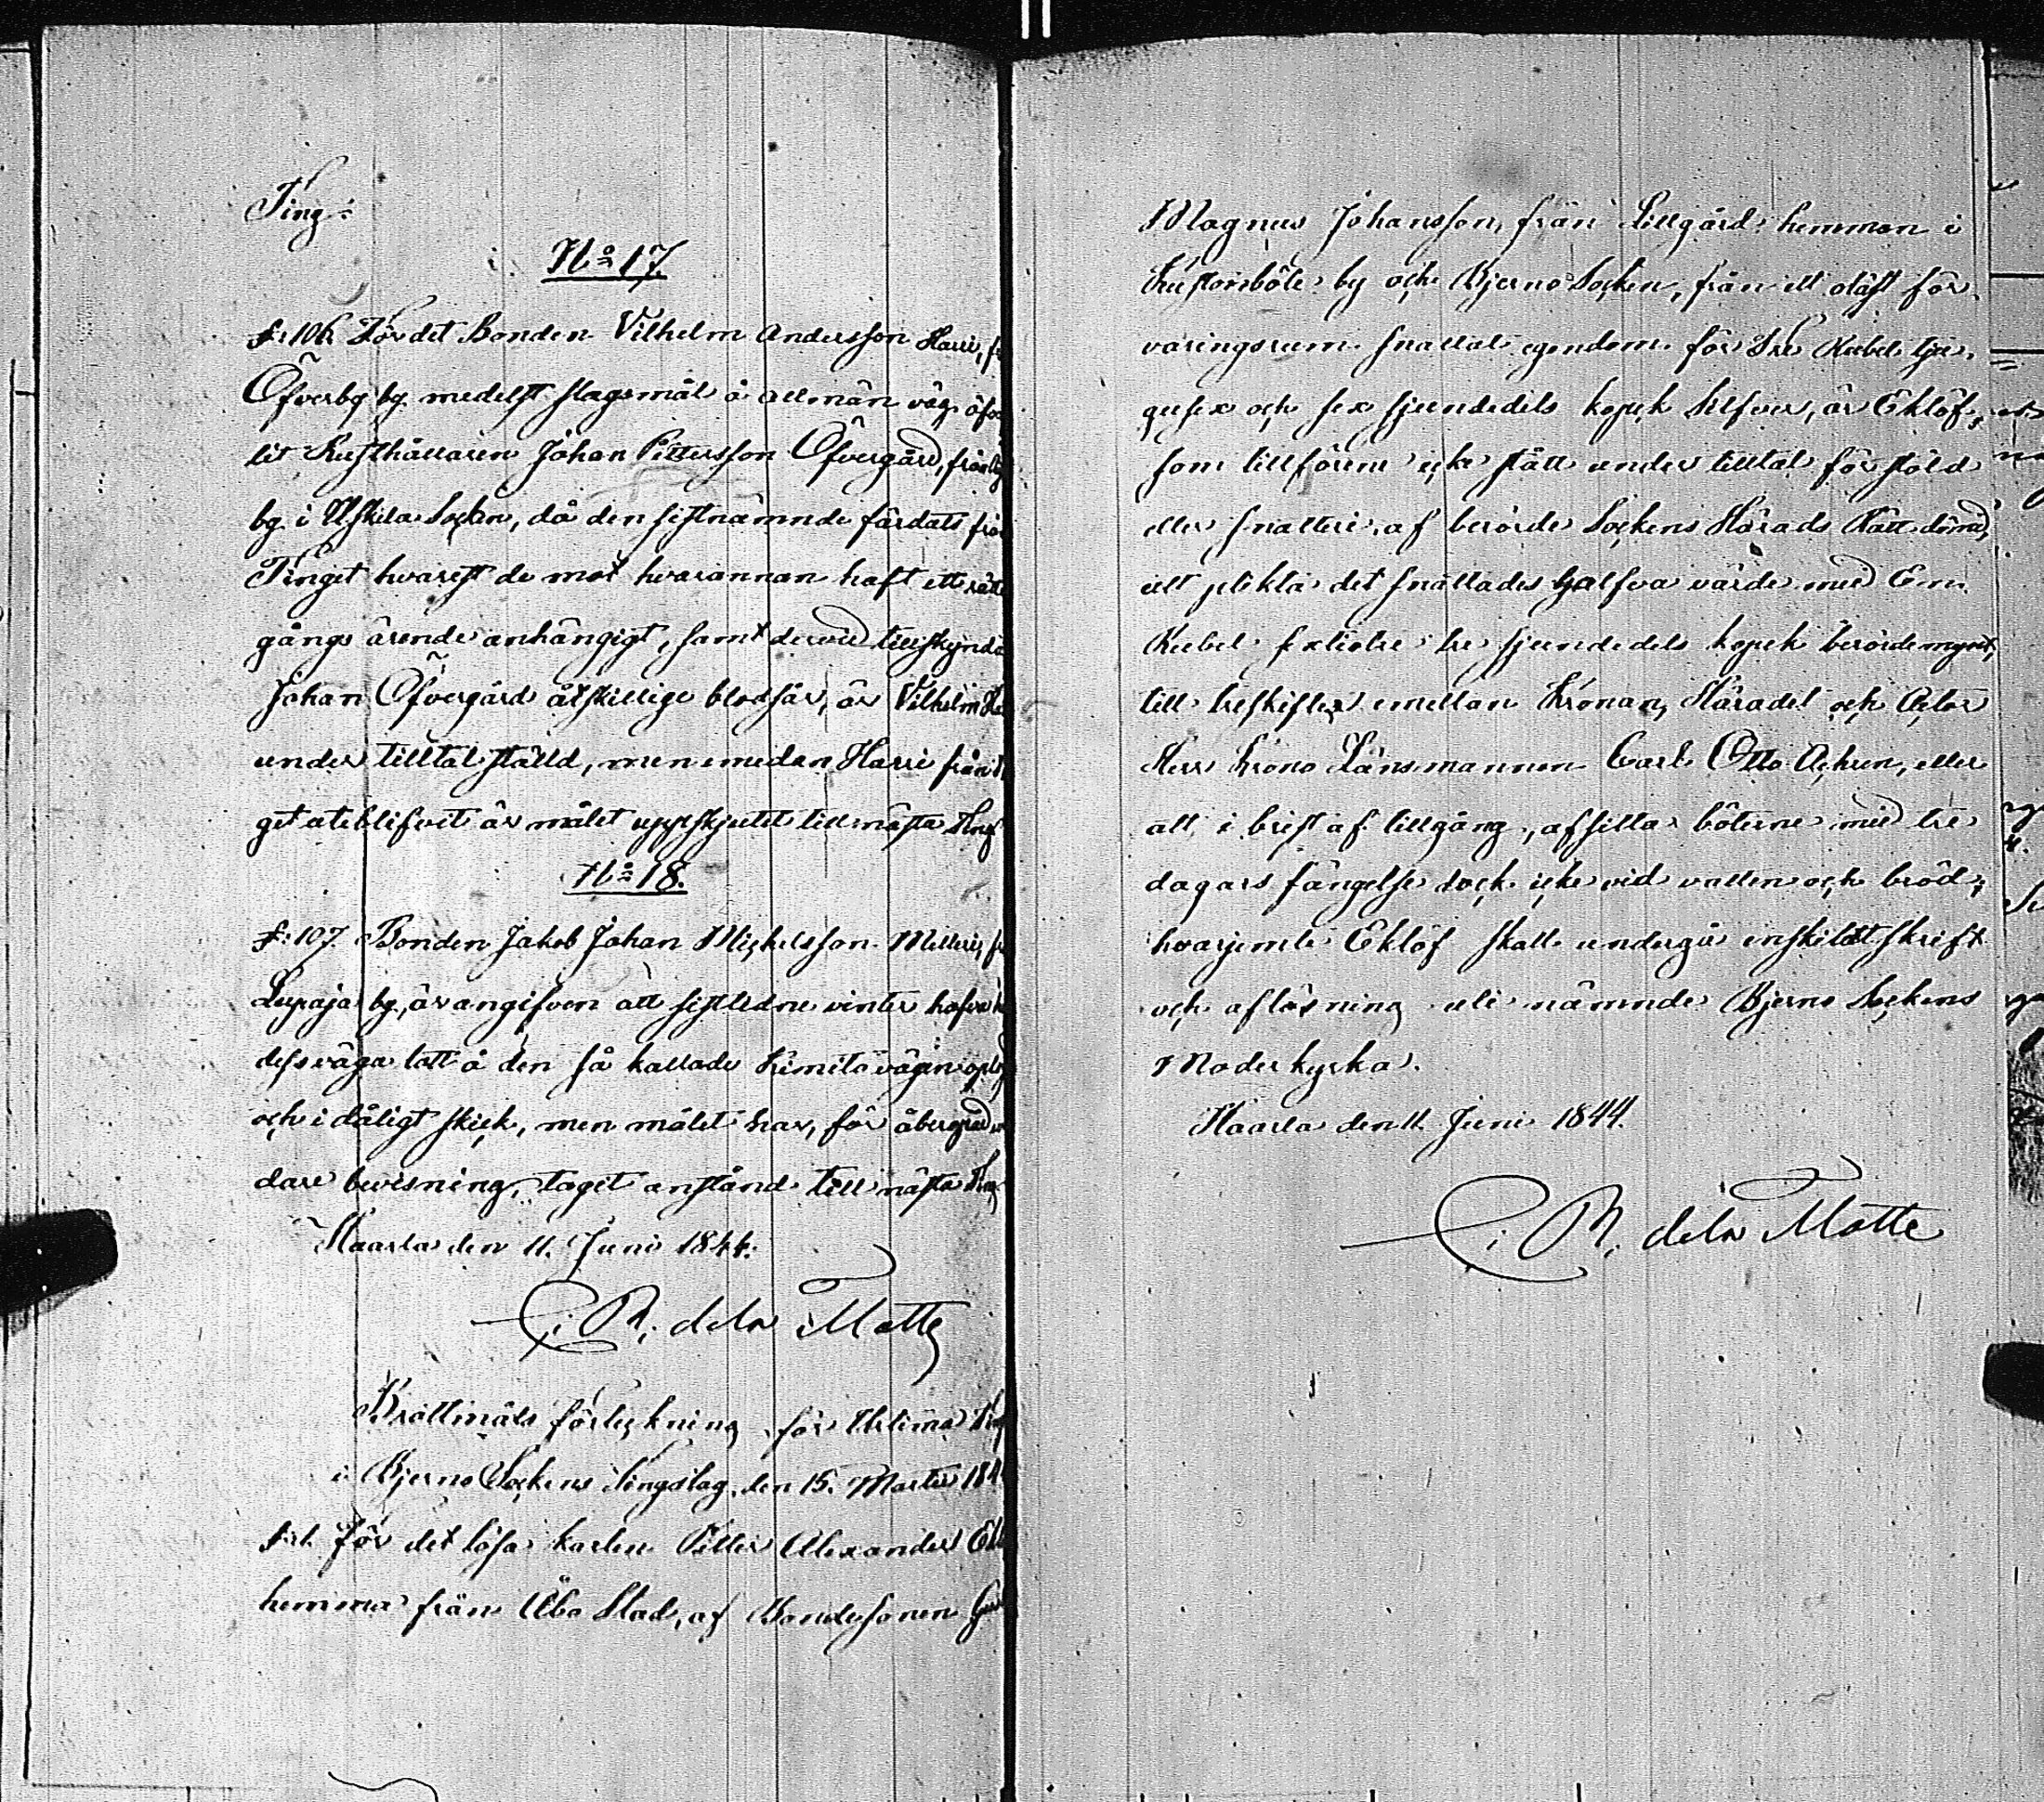 Ting.
No 17.
f: 106. För det Bonden Vilhelm Andersson Harri,
Öfverby by medelst slagsmål å allmän väg öf
lit Rusthållaren Johan Pettersson Öfvergård, från
by i Uskela Socken, då den sistnämnde färdats från
Tinget hvarest de mot hvarannan haft ett rätte
gångs ärende anhängigt, samt dervid tillskynda
Johan Öfvergård åtskillige blodsår, är Vilhelm Ha
under tilltal ställd, men emedan Harri från
get uteblifvit är målet uppskjutet till nästa Ting
No 18.
f: 107. Bonden Jakob Johan Michelsson Melleri,
Lupaja by, är angifven att sistledne vinter hafva
dess väga lott å den så kallade Kimito vägen
och i dåligt skick, men målet har, för åberopad
dare bevisning, taget anstånd till nästa Ting
Haarla den 11. Juni 1844.
C. R. de la Motte
Brottmåls förteckning för Urtima Ting
i Bjerno Sockens Tingslag den 15. Martii 184
f: 1. För det lösa karlen Petter Alexander Ek
hemma från Åbo Stad, af Bondesonen
Magnus Johansson, från Lillgård hemman i
böle by och Bjerno Socken, från ett oläst för-
varingsrum snattat egendom för Tre Rubel tju-
gusex och sex sjundedels kopek Silfver, är Eklöf,
som tillförene icke stått under tilltal för stöld
eller snatteri, af berörde Sockens Härads Rätt dömd,
att plikta det snattades halfva värde med En
Rubel sextiotre tre sjundedels kopek berörde mynt,
till treskiftes emellan Kronan, Häradet och Actor
Herr Krono Länsmannen Carl Otto Achren, eller
att i brist af tillgång, afsitta böterne med tre
dagars fängelse dock icke vid vatten och bröd;
hvarjemte Eklöf skall undergå enskildt skrift
och aflösning uti nämnde Bjerno Sockens
Moderkyrka.
Haarla den 11. Juni 1844.
C. R. de la Motte